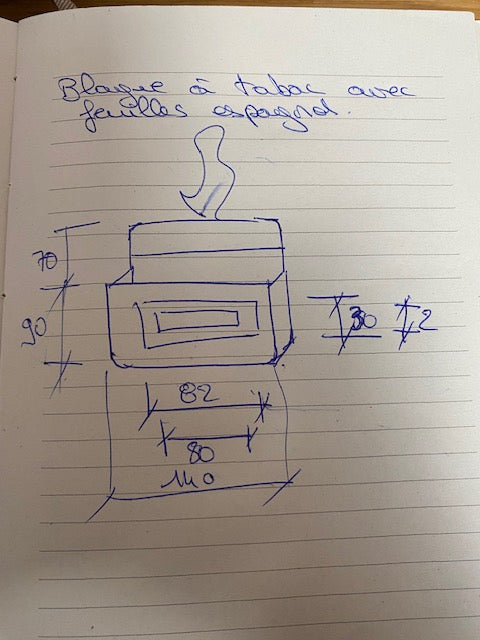 Blague à tabac avec
feuilles espagnol.
70
90
30
2
82
80
140